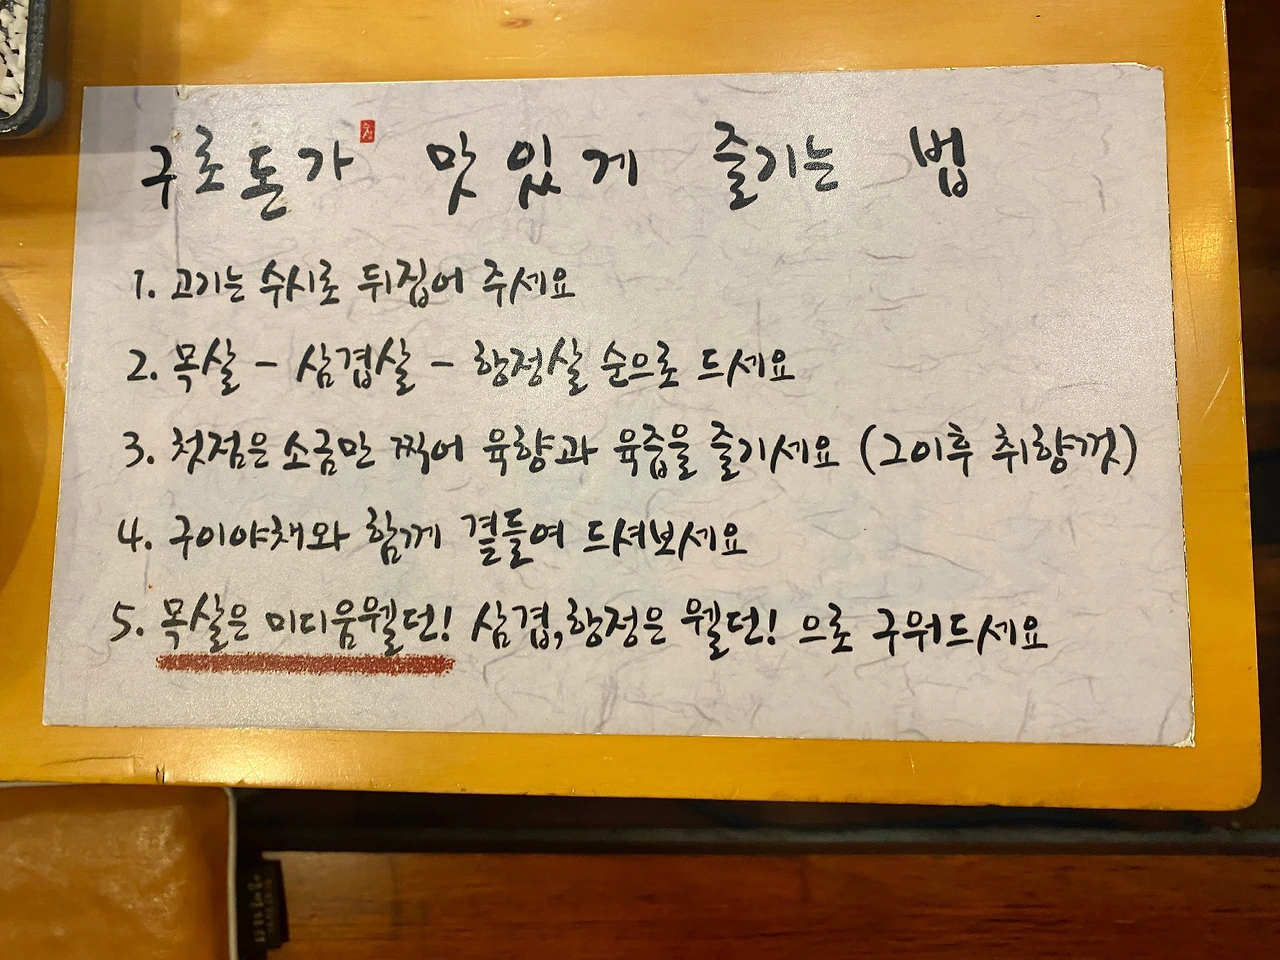 구로돈가 맛있게 즐기는 법
1. 고기는 수시로 뒤집어 주세요
2. 목살 - 삼겹살 - 항정살 순으로 드세요
3. 첫점은 소금만 찍어 육향과 육즙을 즐기세요 (그이후 취향껏)
4. 구이야채와 함께 곁들여 드셔보세요
5. 목살은 미디움웰던! 삼겹,항정은 웰던! 으로 구워드세요